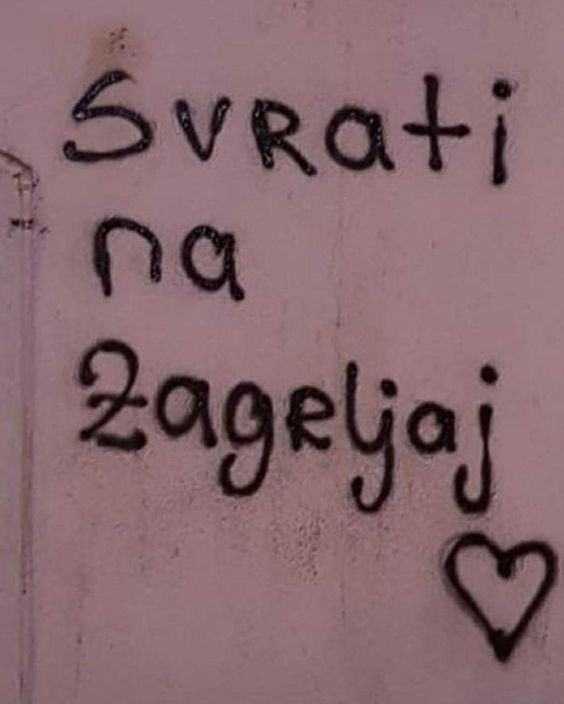 Svrati
na
zageljaj